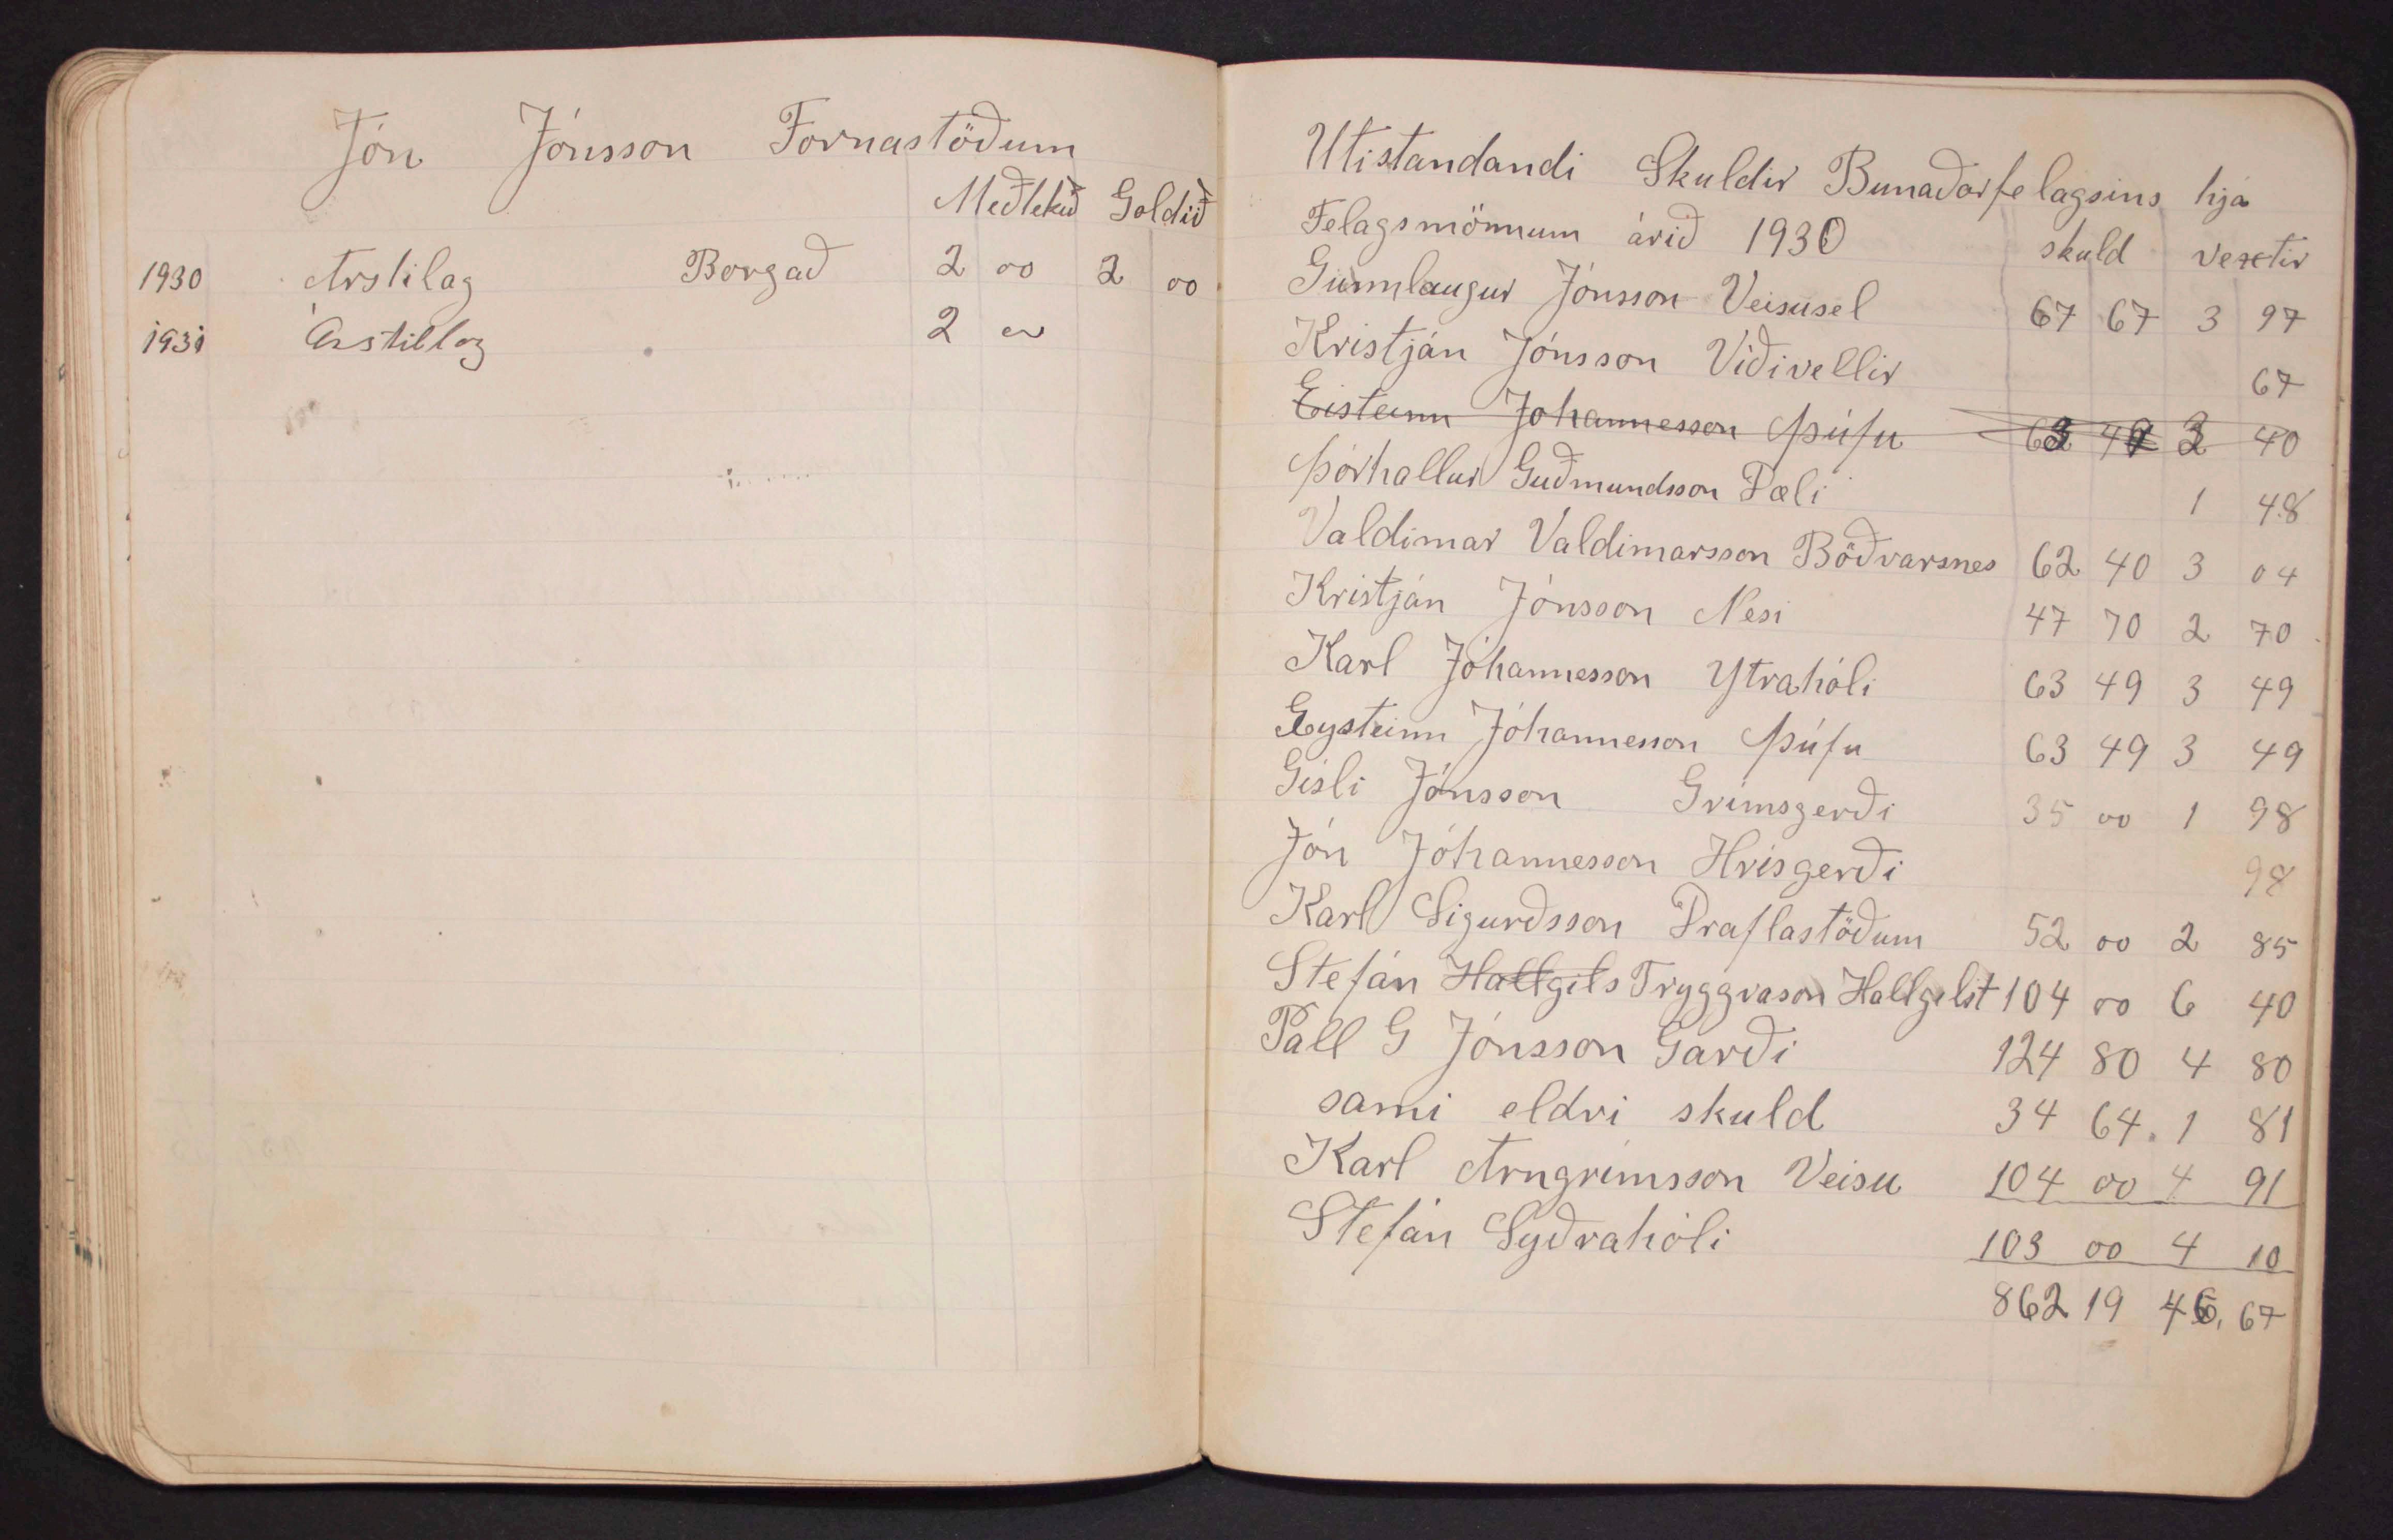 Jón Jónsson Fornastöðum
Meðtekið Goldið
1930 Arstilag Borgað 2 00 2 00
1931 Árstillag 2 00
Utistandandi Skuldir Bunaðarfelagsins hjá
Felagsmönnum árið 1930 skuld vextir
Gunnlaugur Jónsson Veisusel 67 67 3 97
Kristján Jónsson Viðivellir 67
Eisteinn Johannesson Þúfu 63 49 3 40
Þórhallur Guðmundsson Dæli 1 48
Valdimar Valdimarsson Böðvarsnes 62 40 3 04
Kristján Jónsson Nesi 47 70 2 70
Karl Jóhannesson Ytrahóli 63 49 3 49
Eysteinn Jóhannesson Þúfu 63 49 3 49
Gísli Jónsson Grímsgerði 35 00 1 98
Jón Jóhannesson Hrísgerði 98
Karl Sigurðsson Draflastöðum 52 00 2 85
Stefán Hallgils Tryggvason Hallgilst 104 00 6 40
Páll G Jónsson Garði 124 80 4 80
sami eldri skuld 34 64. 1 81
Karl Arngrimsson Veisu 104 00 4 91
Stefán Syðrahóli 103 00 4 10
862 19 46, 67